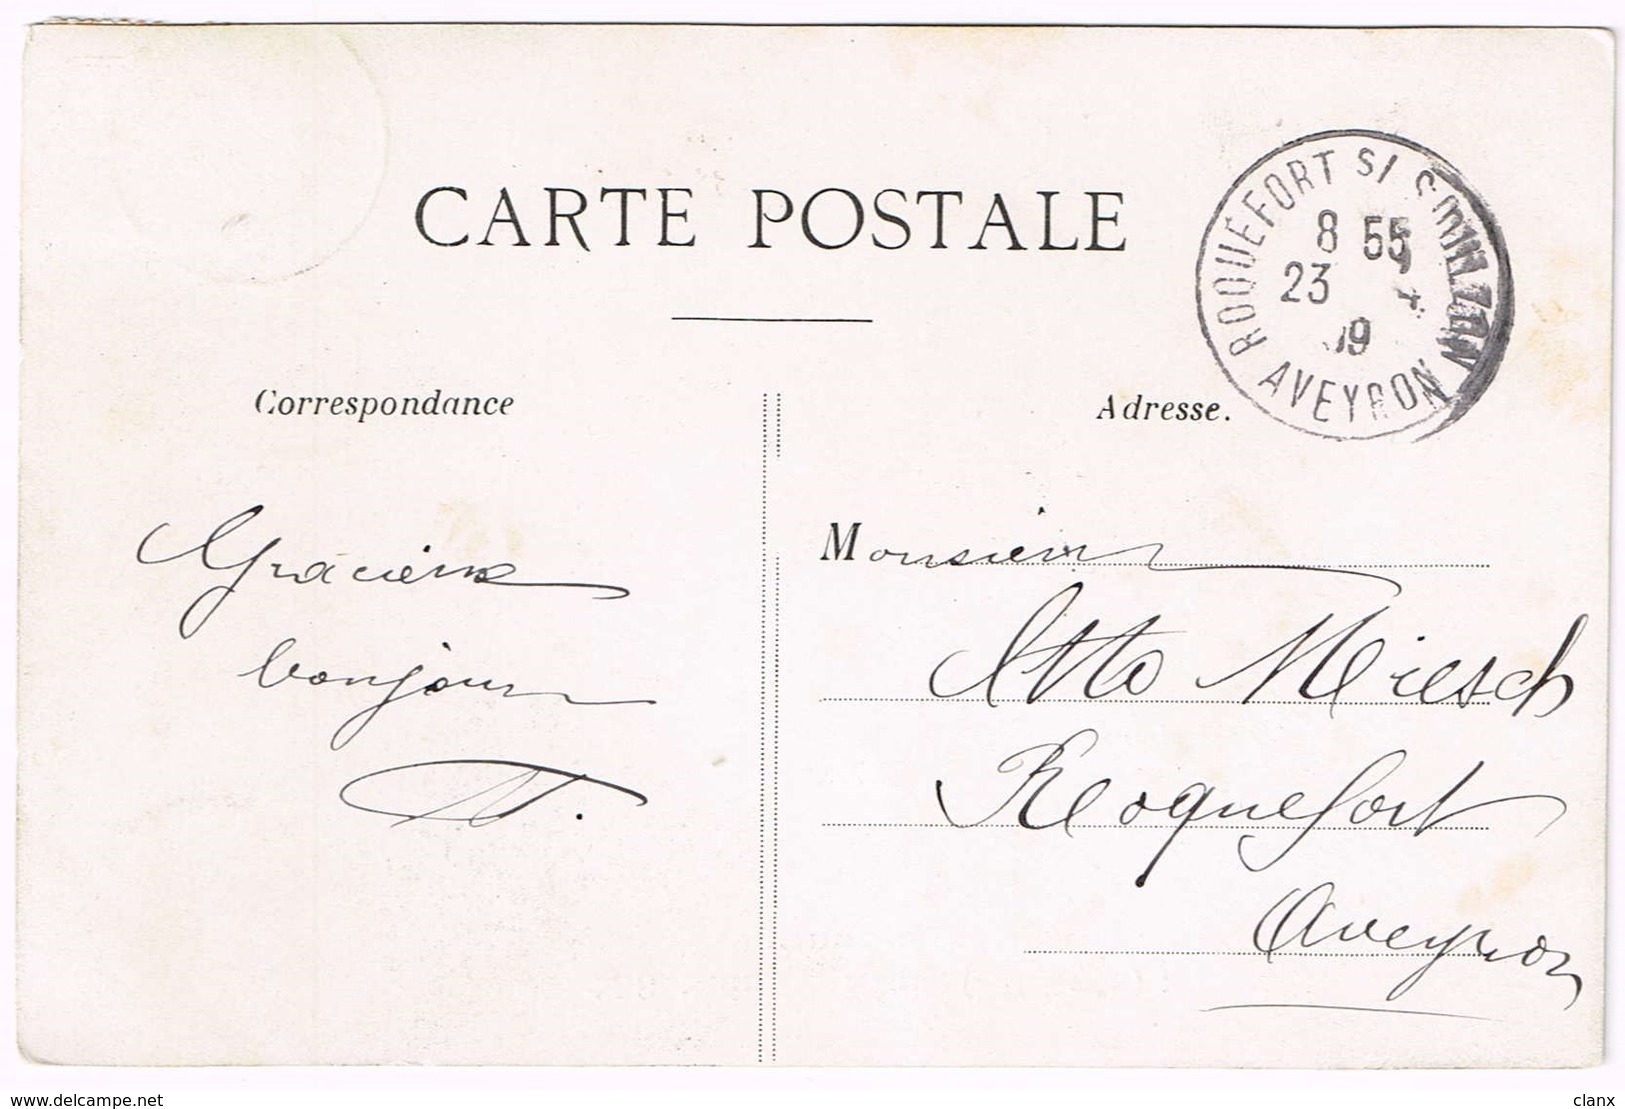 CARTE POSTALE
ROQUEFORT S/ SOULZON
8 55
23
09
AVEYRON
Correspondance
Adresse.
Gracieux
bonjour
Monsieur
Otto Miesch
Roquefort
Aveyron
www.delcampe.net
clanx